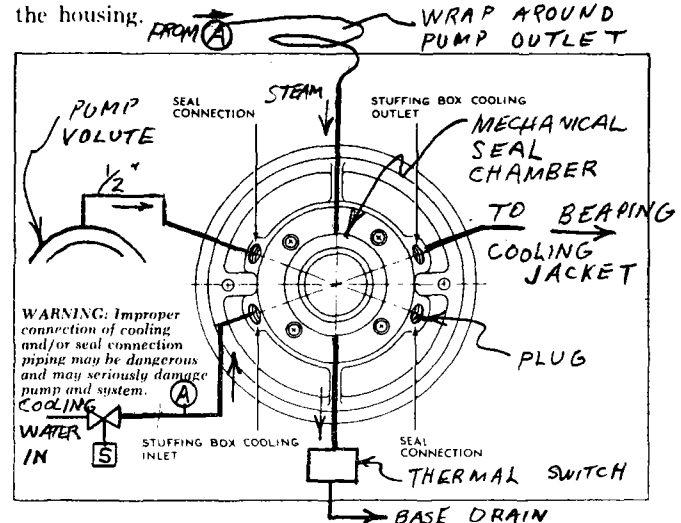 the housing.
FROM A
WRAP AROUND
PUMP OUTLET
STEAM
SEAL
CONNECTION
STUFFING BOX COOLING
OUTLET
PUMP
VOLUTE
1/2"
MECHANICAL
SEAL
CHAMBER
TO BEARING
COOLING
JACKET
WARNING: Improper
connection of cooling
and/or seal connection
piping may be dangerous
and may seriously damage
pump and system.
PLUG
A
COOLING
WATER
IN
S
STUFFING BOX COOLING
INLET
SEAL
CONNECTION
THERMAL SWITCH
BASE DRAIN